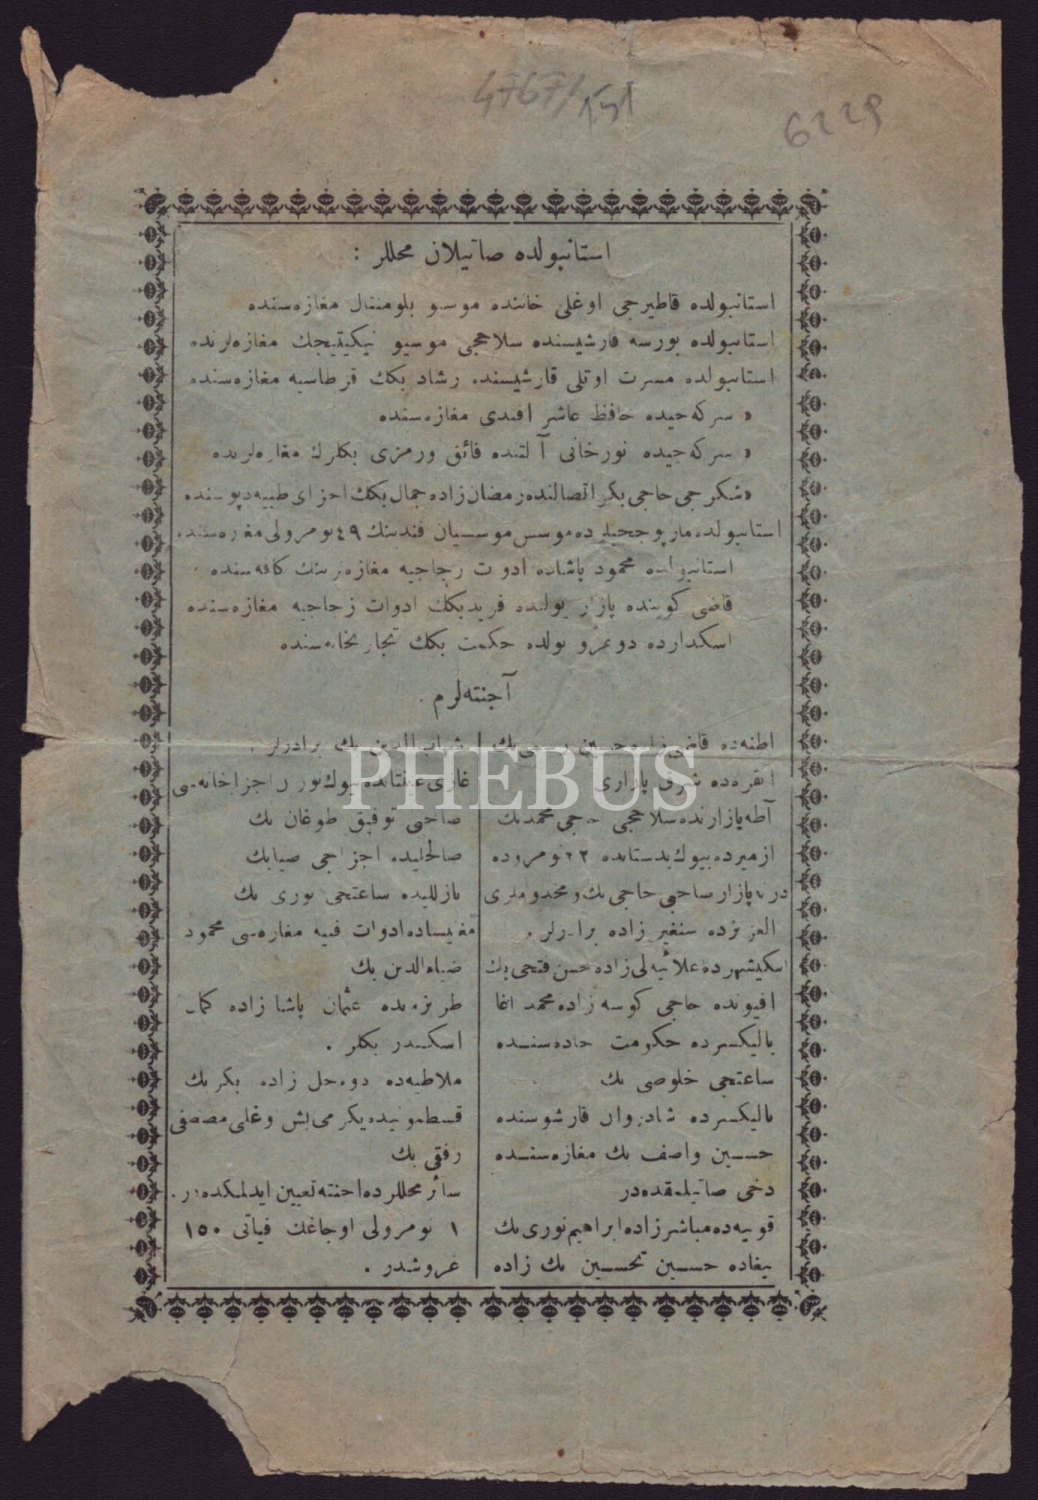 4767/151
6229
استانبولده صاتیلان محللر :
استانبولده قاطیرجی اوغلی خاننده موسیو بلومنتال مغازه‌سنده
استانبولده بورسه قارشیسنده سلاحجی موسیو نیکیتیجك مغازه‌لرنده
استانبولده مسرت اوتلی قارشیسنده رشاد بكك قرطاسیه مغازه‌سنده
» سركه‌جیده حافظ عاشر افندی مغازه‌سنده
» سركه‌جیده نورخانی آلتنده فائق ورمزی بكلرك مغازه‌لرنده
» شكرجی حاجی بكر اتصالنده رمضان زاده جمال بكك اجزای طبیه دپوسنده
استانبولده مارپوججیلرده موسس موسسیان افندینك ٤٩ نومرولی مغازه‌سنده
استانبولده محمود پاشاده ادوات زجاجیه مغازه‌لرینك كافه‌سنده
قاضی كوینده پازار یولنده فریدبكك ادوات زجاجیه مغازه‌سنده
اسكدارده دوغرو یولده حكمت بكك تجارتخانه‌سنده
آجنته‌لرم .
اطنه‌ده قاضی حسین بك
انقره‌ده شرق پازاری
آطه‌پازارنده سلاحجی حاجی محمد بك
ازمیرده بیوك بدستانده ٢٢ نومروده
درت پازار صاحبی حاجی بك و مخدوملری
العزیزده سنغیر زاده برادرلر .
اسكیشهرده علائیه‌لی زاده حسن فتحی بك
افیونده حاجی كوسه زاده محمد اغا
بالیكسرده حكومت جاده‌سنده
ساعتجی خلوصی بك
بالیكسرده شادروان قارشوسنده
حسین واصف بك مغازه‌سنده
دخی صاتیلمقده‌در
قونیه‌ده مباشرزاده ابراهیم نوری بك
بیغاده حسین تحسین بك زاده
شهاب‌الدین بك برادرلر .
غازی عینتابده بیوك نوران اجزاخانه‌سی
صاحبی توفیق طوغان بك
صالحلیده اجزاجی ضیابك
نازللیده ساعتجی نوری بك
مغنیساده ادوات فنیه مغازه‌سی محمود
ضیاءالدین بك
طربزونده عثمان پاشا زاده كمال
اسكندر بكلر .
ملاطیه‌ده زاده بكر بك
قسطمونیده یكرمی‌بش اوغلی مصطفی
رفقی بك
سائر محللرده اجنته تعیین ایدلمكده‌در .
١ نومرولی اوجاغك فیاتی ١٥٠
غروشدر .
PHEBUS